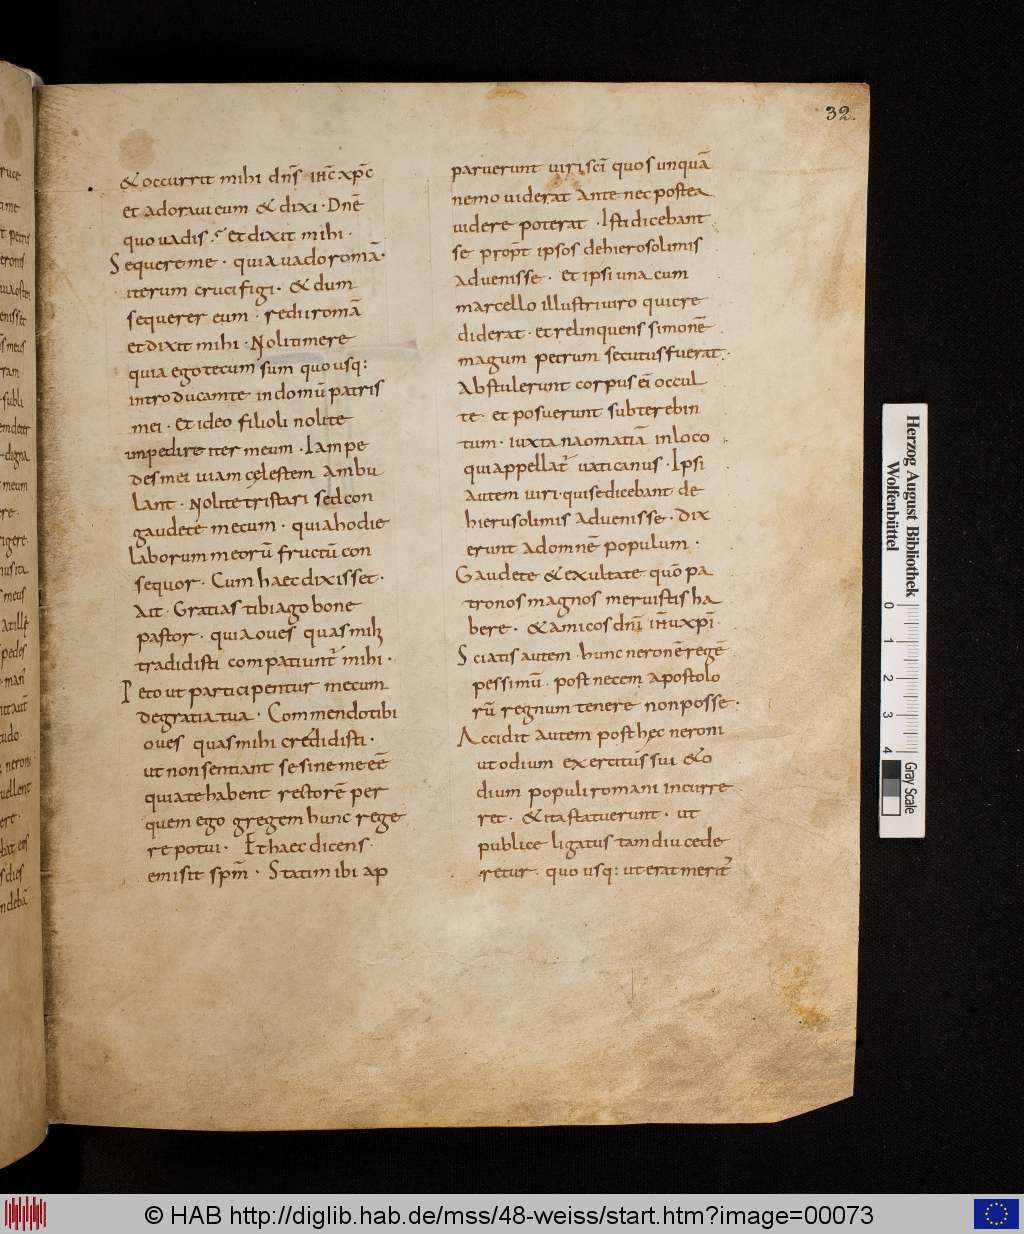 32.
& occurrit mihi dn̄s ihc̄ xp̄c
et adoraui eum & dixi · Dnē
quo uadis · et dixit mihi ·
Sequere me · quia uado romā ·
iterum crucifigi · & dum
sequerer eum · redii romā
et dixit mihi · Noli timere
quia ego tecum sum quo usq:
introducam te in domū patris
mei · Et ideo filioli nolite
impedire iter meum · Iam pe
des mei uiam cęlestem ambu
lant · Nolite tristari sed con
gaudete mecum · quia hodie
laborum meorū fructū con
sequor · Cum haec dixisset ·
Ait · Gratias tibi ago bone
pastor · quia oues quas mihi
tradidisti compatiunt̄ mihi ·
Peto ut participentur mecum
de gratia tua · Commendo tibi
oues quas mihi credidisti ·
ut non sentiant se sine me eē
qui a te habent rectorē per
quem ego gregem hunc rege
re potui · Et haec dicens ·
emisit spm̄ · Statim ibi ap
paruerunt uiri scī quos unquā
nemo uiderat ante nec postea
uidere poterat · Isti dicebant
se propt̄ ipsos de hierosolimis
aduenisse · et ipsi una cum
marcello illustri uiro qui cre
diderat · et relinquens simonē
magum petrum secutus fuerat ·
Abstulerunt corpus eī occul
te · et posuerunt sub terebin
tum · iuxta naomatiā in loco
qui appellat̄ uaticanus · Ipsi
autem uiri · qui se dicebant de
hierusolimis aduenisse · dix
erunt ad omnē populum ·
Gaudete & exultate quō pa
tronos magnos meruistis ha
bere · & amicos dnī ihū xpī ·
Sciatis autem · hunc neronē regē
pessimū · post necem apostolo
rū regnum tenere non posse ·
Accidit autem post hęc neroni
ut odium exercitus sui & o
dium populi romani incurre
ret · & ita statuerunt · ut
publice ligatus tam diu cede
retur · quo usq: ut erat merit̄
Herzog August Bibliothek
Wolfenbüttel
0 1 2 3 4
Gray Scale
© HAB http://diglib.hab.de/mss/48-weiss/start.htm?image=00073